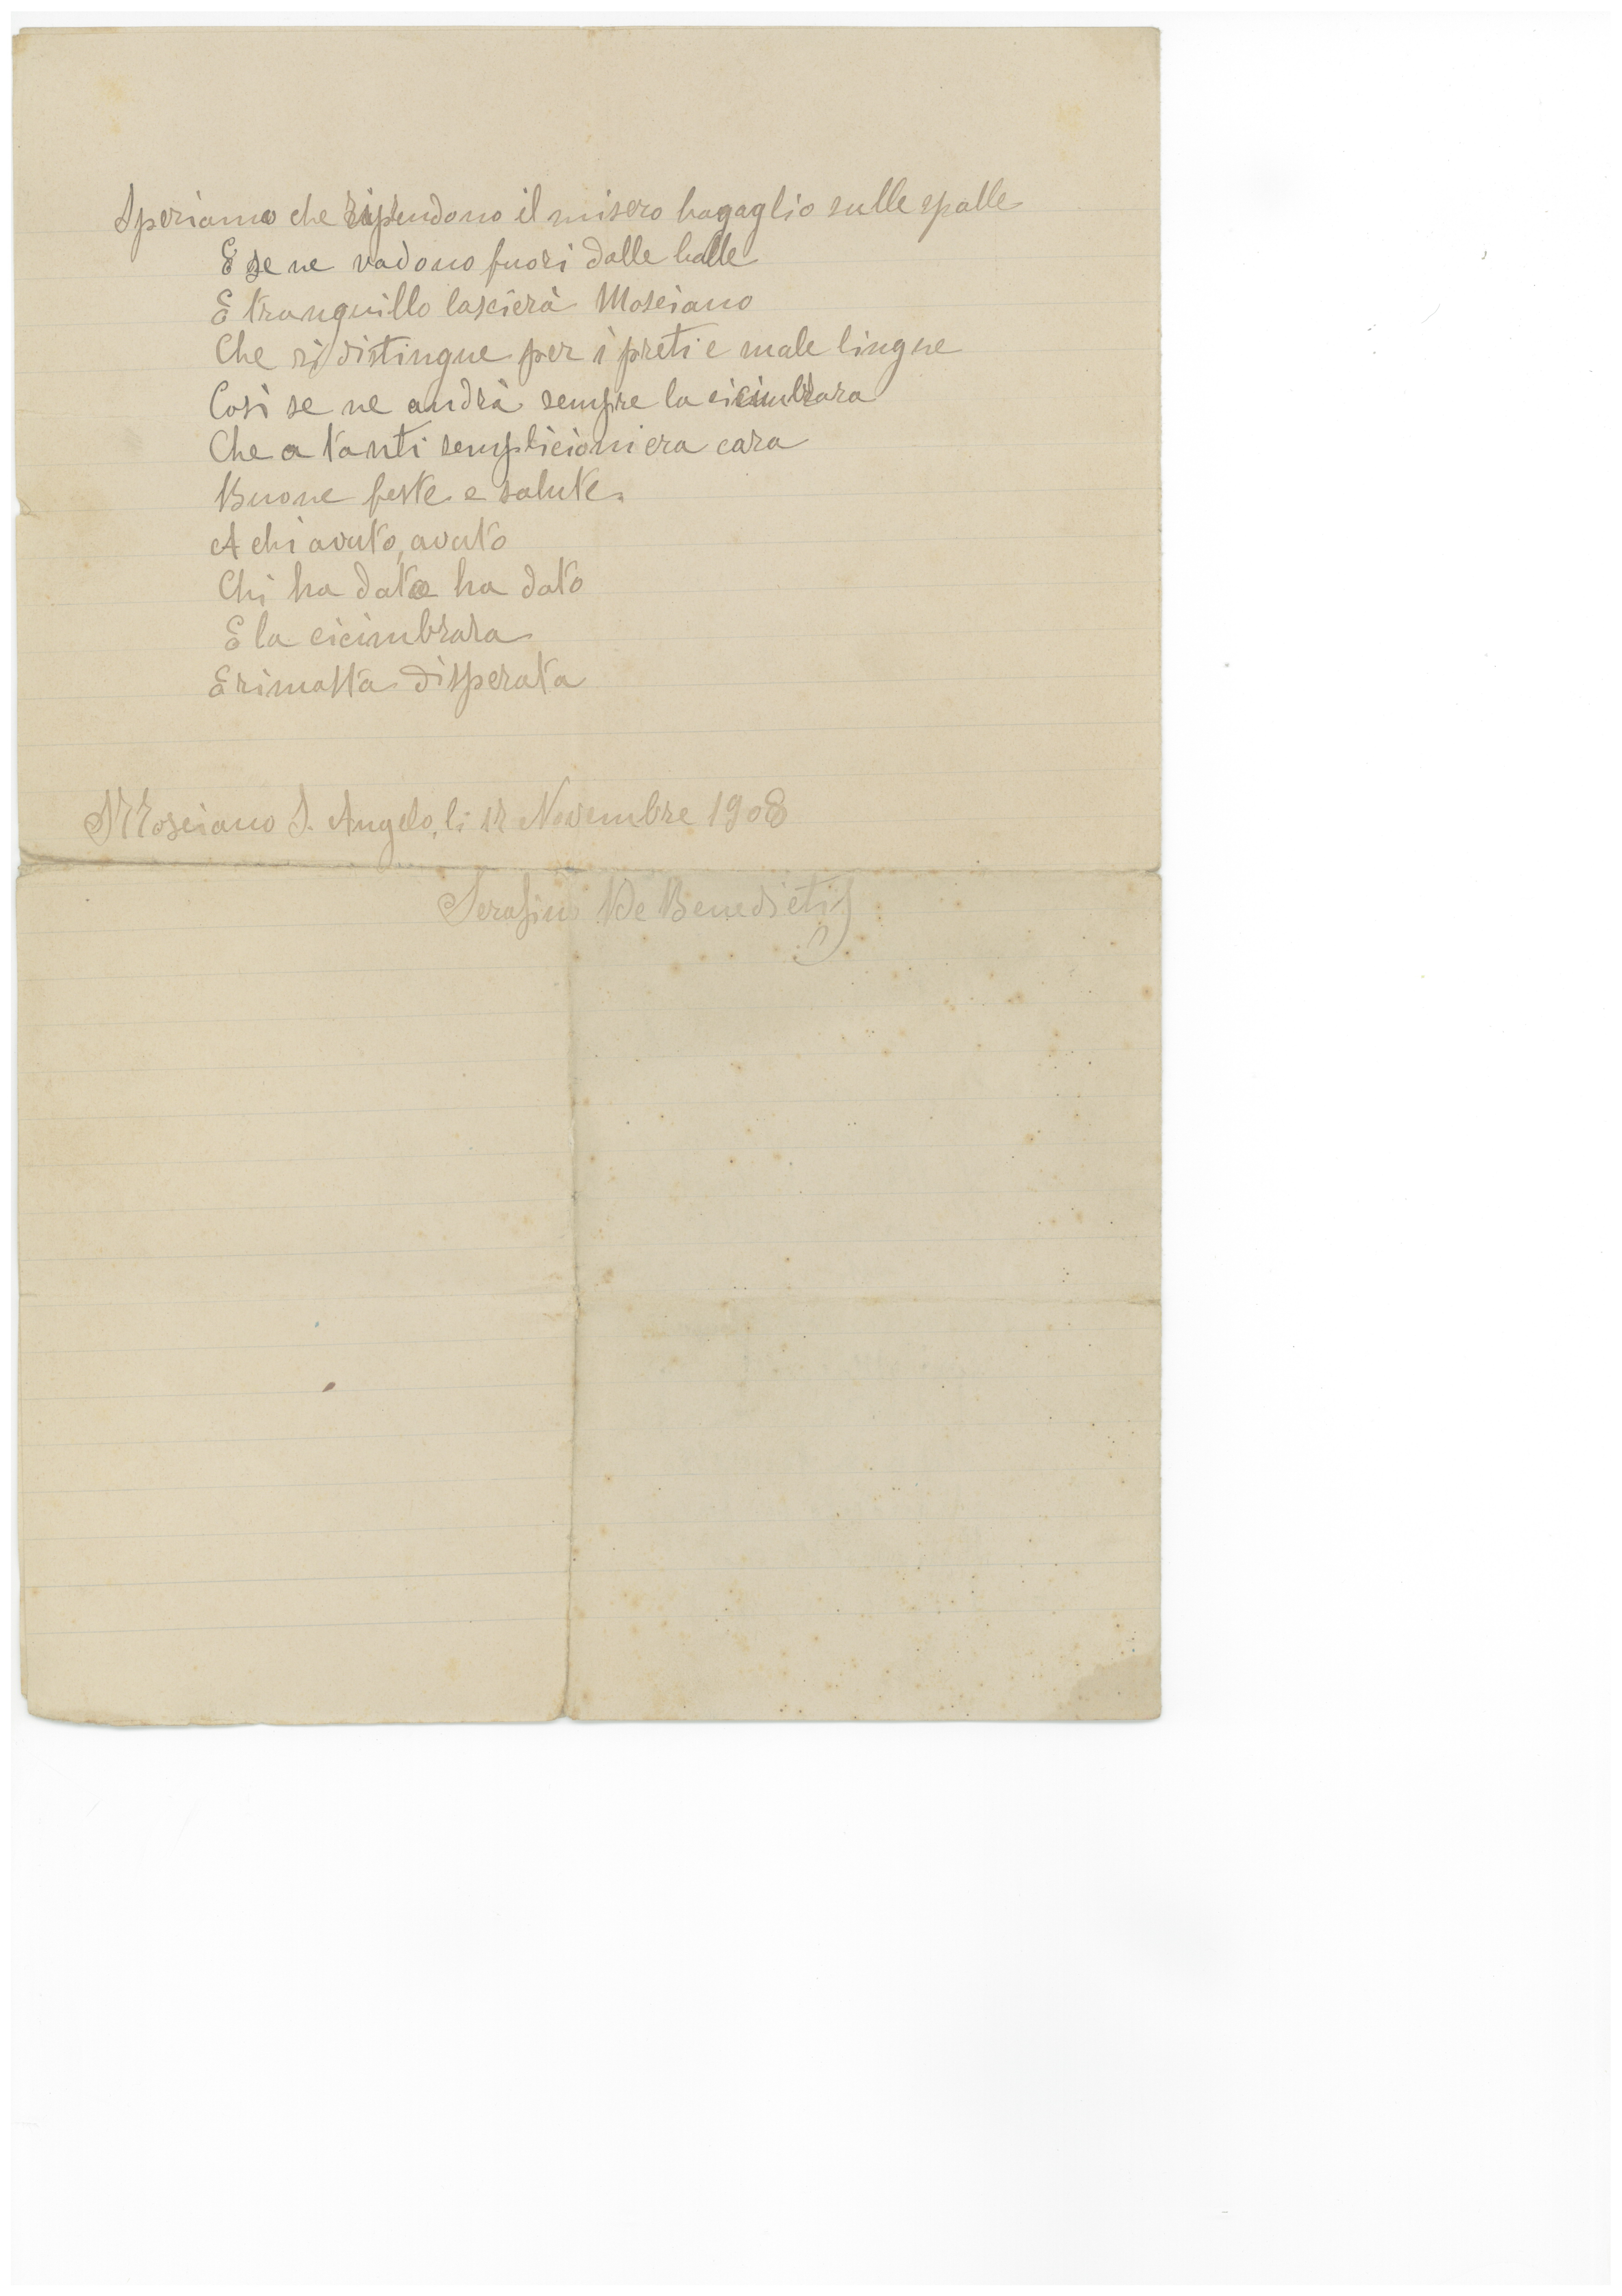 Speriamo che riprendono il misero bagaglio sulle spalle
E se ne vadono fuori dalle balle
E tranquillo lascierà Mosciano
Che si distingue per i preti e male lingue
Così se ne andrà sempre la cicimbrara
Che a tanti sempliciomi era cara
Buone feste e salute.
A chi avuto, avuto
Chi ha dato ha dato
E la cicimbrara
E rimasta disperata
Mosciano S. Angelo, li 12 Novembre 1908
Serafino De Benedictis